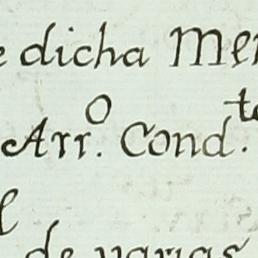 e dicha Me
Arr.º Cond.to
de varias